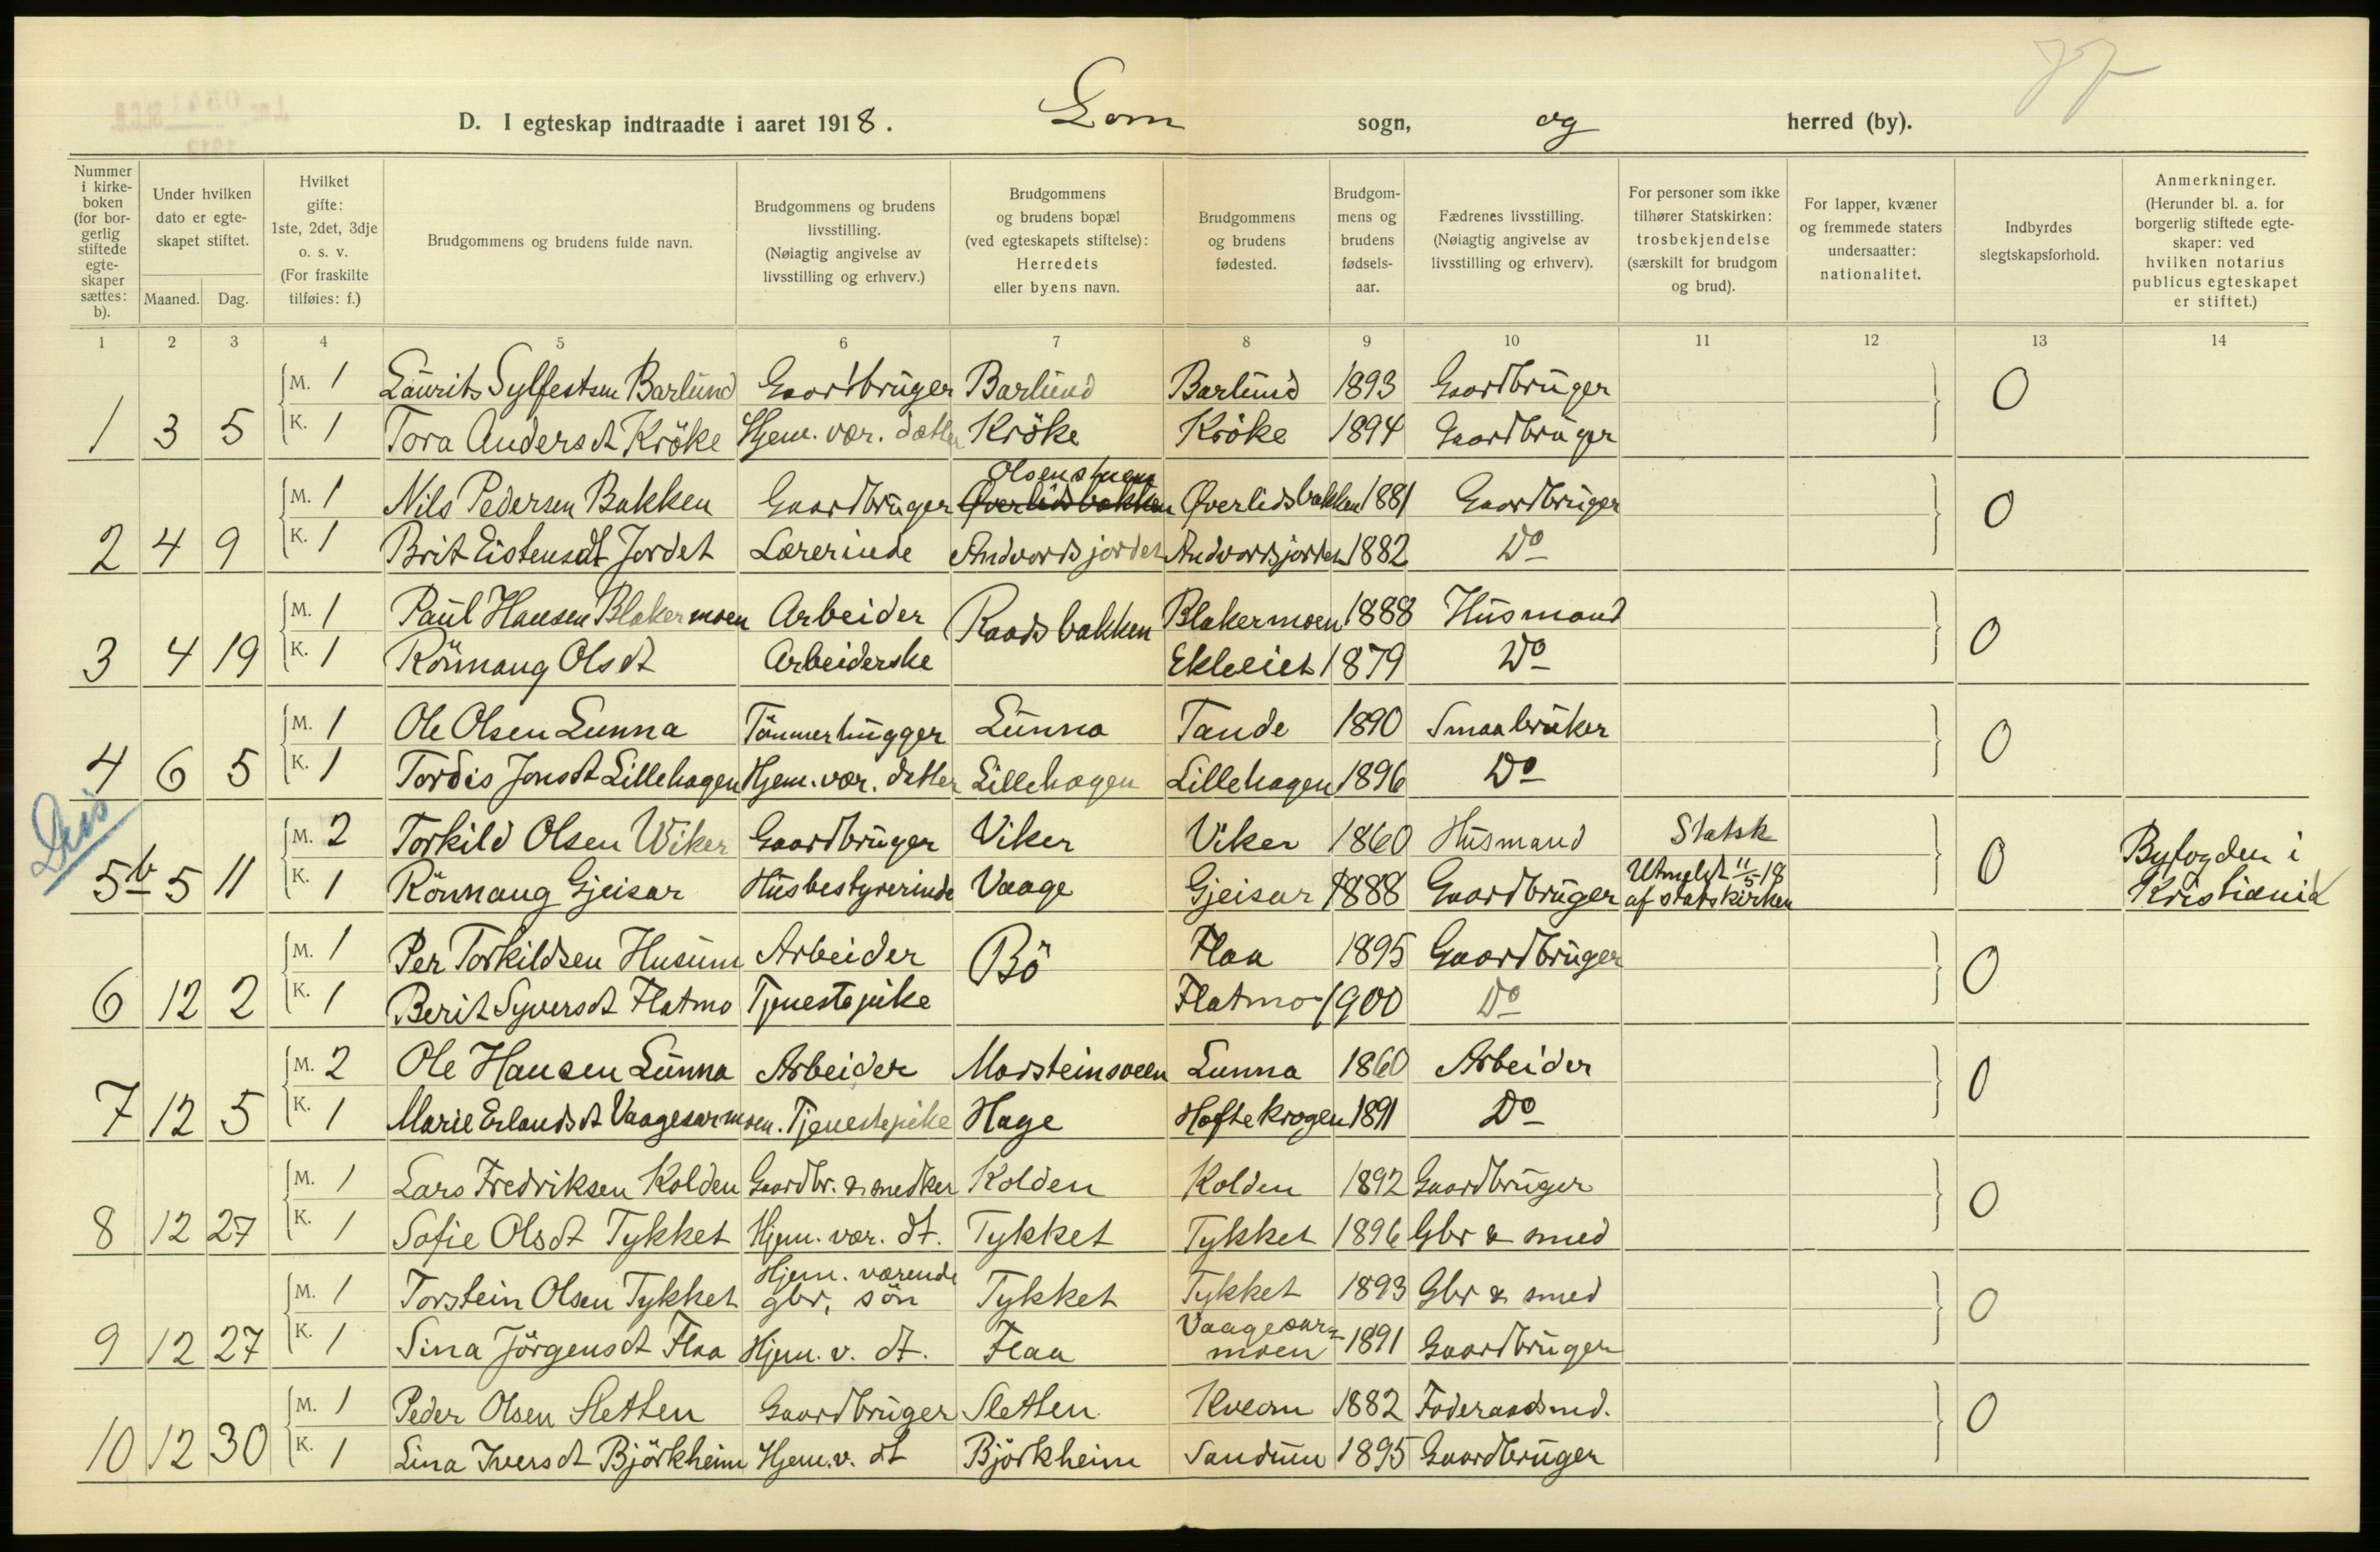 77
D. I egteskap indtraadte i aaret 1918. Lom sogn, og herred (by).
Nummer i kirkeboken (for borgerlig stiftede egteskaper sættes: b).
Under hvilken dato er egteskapet stiftet.
Maaned. Dag.
Hvilket gifte: 1ste, 2det, 3dje o. s. v. (For fraskilte tilføies: f.)
Brudgommens og brudens fulde navn.
Brudgommens og brudens livsstilling. (Nøiagtig angivelse av livsstilling og erhverv.)
Brudgommens og brudens bopæl (ved egteskapets stiftelse): Herredets eller byens navn.
Brudgommens og brudens fødested.
Brudgommens og brudens fødselsaar.
Fædrenes livsstilling. (Nøiagtig angivelse av livsstilling og erhverv).
For personer som ikke tilhører Statskirken: trosbekjendelse (særskilt for brudgom og brud).
For lapper, kvæner og fremmede staters undersaatter: nationalitet.
Indbyrdes slegtskapsforhold.
Anmerkninger. (Herunder bl. a. for borgerlig stiftede egteskaper: ved hvilken notarius publicus egteskapet er stiftet.)
1 2 3 4 5 6 7 8 9 10 11 12 13 14
M. 1 Laurits Sylfestsen Barlund Gaardbruger Barlund Barlund 1893 Gaardbruger 0
1 3 5 K. 1 Tora Andersdt Kröke Hjem. vær. datter Kröke Kröke 1894 Gaardbruger
Olsenstuen
M. 1 Nils Pedersen Bakken Gaardbruger Øverlidsbakken Øverlidsbakken 1881 Gaardbruger 0
2 4 9 K. 1 Brit Eistensdt Jordet Lærerinde Andvordsjordet Andvordsjordet 1882 Do
M. 1 Paul Hansen Blakermoen Arbeider Raadsbakken Blakermoen 1888 Husmand 0
3 4 19 K. 1 Rönnaug Olsdt Arbeiderske Ekleeiet 1879 Do
M. 1 Ole Olsen Lunna Tömmerhugger Lunna Tande 1890 Smaabruker 0
4 6 5 K. 1 Tordis Jonsdt Lillehagen Hjem. vær. datter Lillehagen Lillehagen 1896 Do
Dis
M. 2 Torkild Olsen Wiker Gaardbruger Viker Viker 1860 Husmand Statsk 0 Byfogden i
5b 5 11 K. 1 Rönnaug Gjeisar Husbestyrerinde Vaage Gjeisar 1888 Gaardbruger Utmeldt 11/5-18 af statskirken Kristiania
M. 1 Per Torkildsen Husum Arbeider Bö Flaa 1895 Gaardbruger 0
6 12 2 K. 1 Berit Syversdt Flatmo Tjenestepike Flatmo 1900 Do
M. 2 Ole Hansen Lunna Arbeider Marsteinsveen Lunna 1860 Arbeider 0
7 12 5 K. 1 Marie Erlandsdt Vaagesarmoen. Tjenestepike Hage Hoftekrogen 1891 Do
M. 1 Lars Fredriksen Kolden Gaardbr. & snedker Kolden Kolden 1892 Gaardbruger 0
8 12 27 K. 1 Sofie Olsdt Tykket Hjem. vær. dt. Tykket Tykket 1896 Gbr & smed
Hjem. værende
M. 1 Torstein Olsen Tykket gbr, sön Tykket Tykket 1893 Gbr & smed 0
9 12 27 K. 1 Sina Jörgensdt Flaa Hjem. v. dt. Flaa Vaagesarmoen 1891 Gaardbruger
M. 1 Peder Olsen Sletten Gaardbruger Sletten Kveom 1882 Föderaadsmd. 0
10 12 30 K. 1 Lina Iversdt Björkheim Hjem. v. dt Björkheim Sandum 1895 Gaardbruger